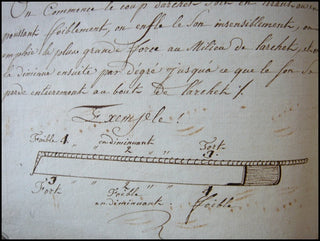 On Commence le coup d'archet soit en tirant ou en
poussant foiblement, on enfle le son insensiblement, on
emploie la plus grande force au Milieu de l'archet, et on
la diminue ensuite par degré jusqua ce que le son se
perde entierement au bout de l'archet
Exemple!
Foible 4 en diminuant 3
Fort
3 2 4
Fort Foible
en diminuant Foible